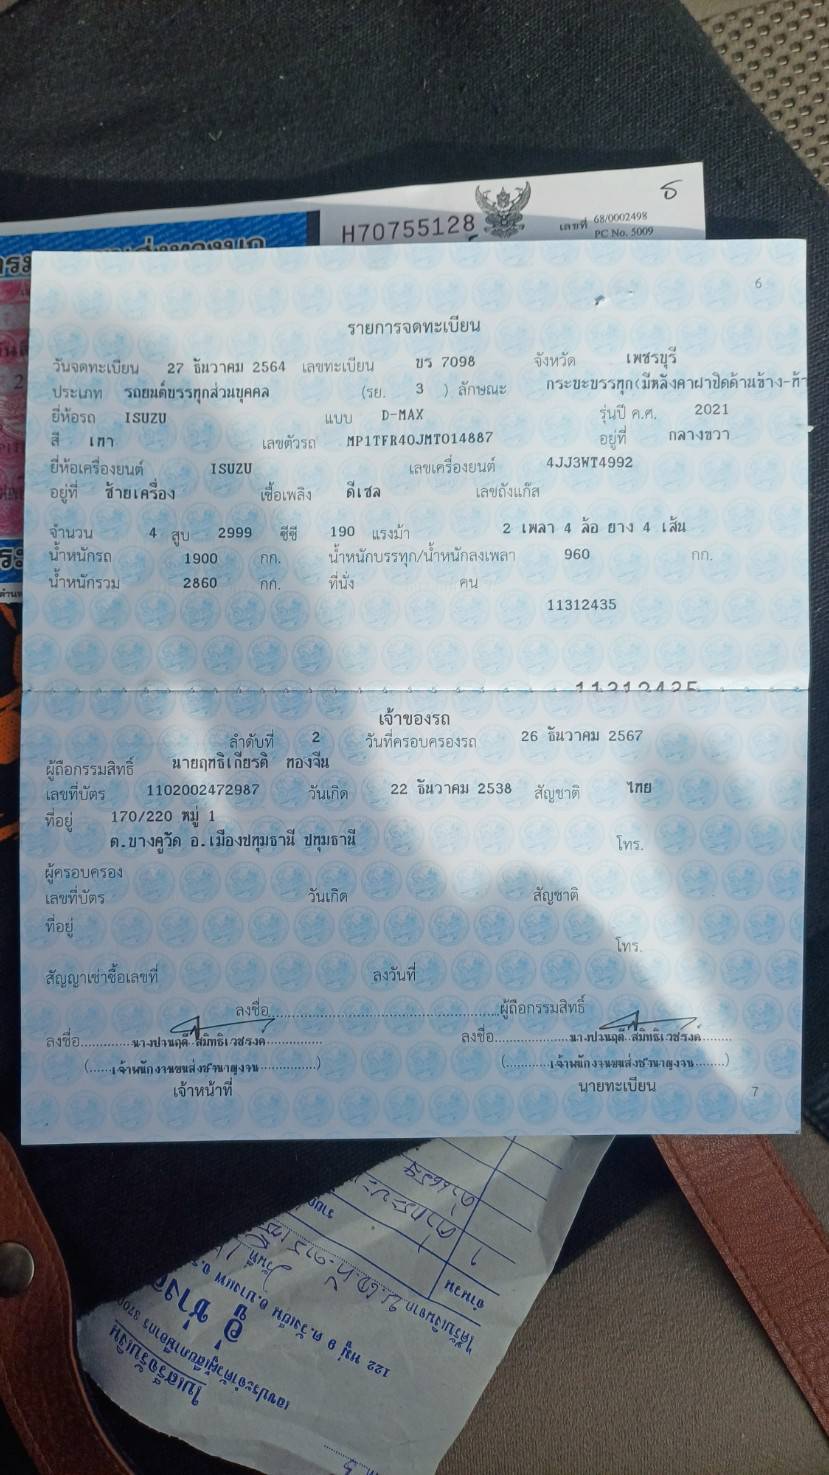 H70755128
เลขที่ 68/0002498
PC No. 5009
6
รายการจดทะเบียน
วันจดทะเบียน 27 ธันวาคม 2564 เลขทะเบียน บร 7098 จังหวัด เพชรบุรี
ประเภท รถยนต์บรรทุกส่วนบุคคล (รย. 3 ) ลักษณะ กระบะบรรทุก(มีหลังคาฝาปิดด้านข้าง-ท้า
ยี่ห้อรถ ISUZU แบบ D-MAX รุ่นปี ค.ศ. 2021
สี เทา เลขตัวรถ MP1TFR40JMT014887 อยู่ที่ กลางขวา
ยี่ห้อเครื่องยนต์ ISUZU เลขเครื่องยนต์ 4JJ3WT4992
อยู่ที่ ซ้ายเครื่อง เชื้อเพลิง ดีเซล เลขถังแก๊ส
จำนวน 4 สูบ 2999 ซีซี 190 แรงม้า 2 เพลา 4 ล้อ ยาง 4 เส้น
น้ำหนักรถ 1900 กก. น้ำหนักบรรทุก/น้ำหนักลงเพลา 960 กก.
น้ำหนักรวม 2860 กก. ที่นั่ง คน
11312435
11312435
เจ้าของรถ
ลำดับที่ 2 วันที่ครอบครองรถ 26 ธันวาคม 2567
ผู้ถือกรรมสิทธิ์ นายฤทธิเกียรติ ทองจีน
เลขที่บัตร 1102002472987 วันเกิด 22 ธันวาคม 2538 สัญชาติ ไทย
ที่อยู่ 170/220 หมู่ 1
ต.บางคูวัด อ.เมืองปทุมธานี ปทุมธานี โทร.
ผู้ครอบครอง
เลขที่บัตร วันเกิด สัญชาติ
ที่อยู่
โทร.
สัญญาเช่าซื้อเลขที่ ลงวันที่
ลงชื่อ ผู้ถือกรรมสิทธิ์
ลงชื่อ นางปานฤดี สมิทธิเวชรงค์ ลงชื่อ นางปานฤดี สมิทธิเวชรงค์
(เจ้าพนักงานขนส่งชำนาญงาน) (เจ้าพนักงานขนส่งชำนาญงาน)
เจ้าหน้าที่ นายทะเบียน
7
ใบเสร็จรับเงิน
เลขประจำตัวผู้เสียภาษีอากร
อู่ช่าง
122 หมู่
ได้รับเงินจาก
จำนวน
1